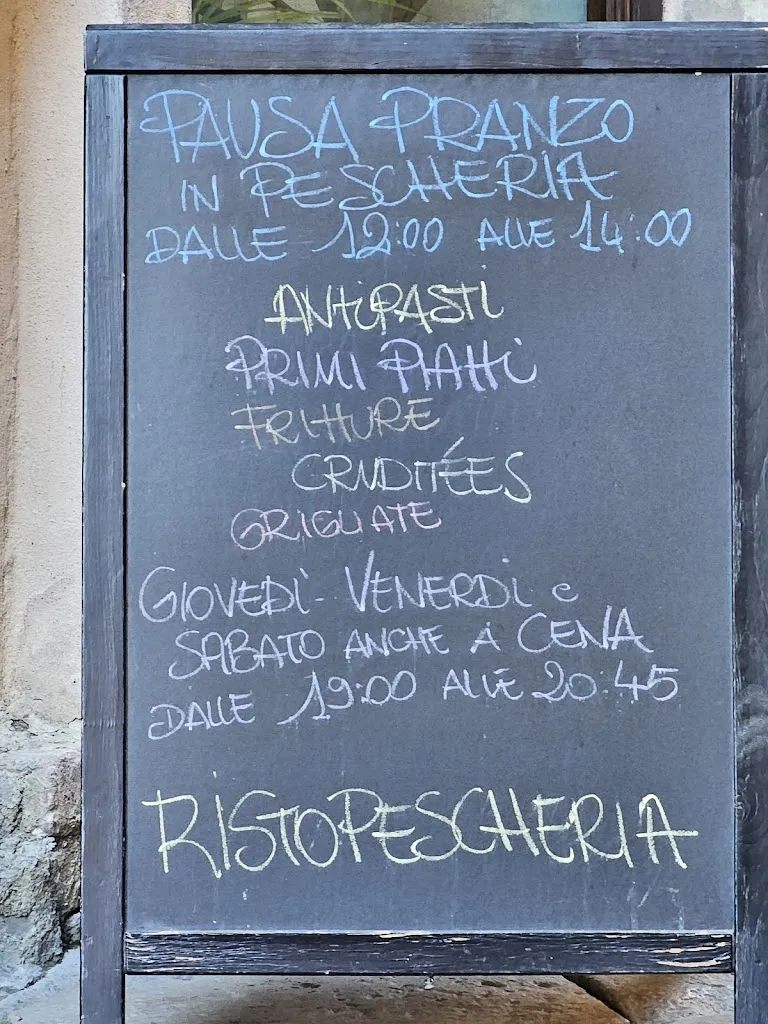 PAUSA PRANZO
IN PESCHERIA
DALLE 12:00 ALLE 14:00
ANTIPASTI
PRIMI PIATTI
FRITTURE
CRUDITÉES
GRIGLIATE
GIOVEDÌ - VENERDÌ e
SABATO ANCHE A CENA
DALLE 19:00 ALLE 20:45
RISTOPESCHERIA